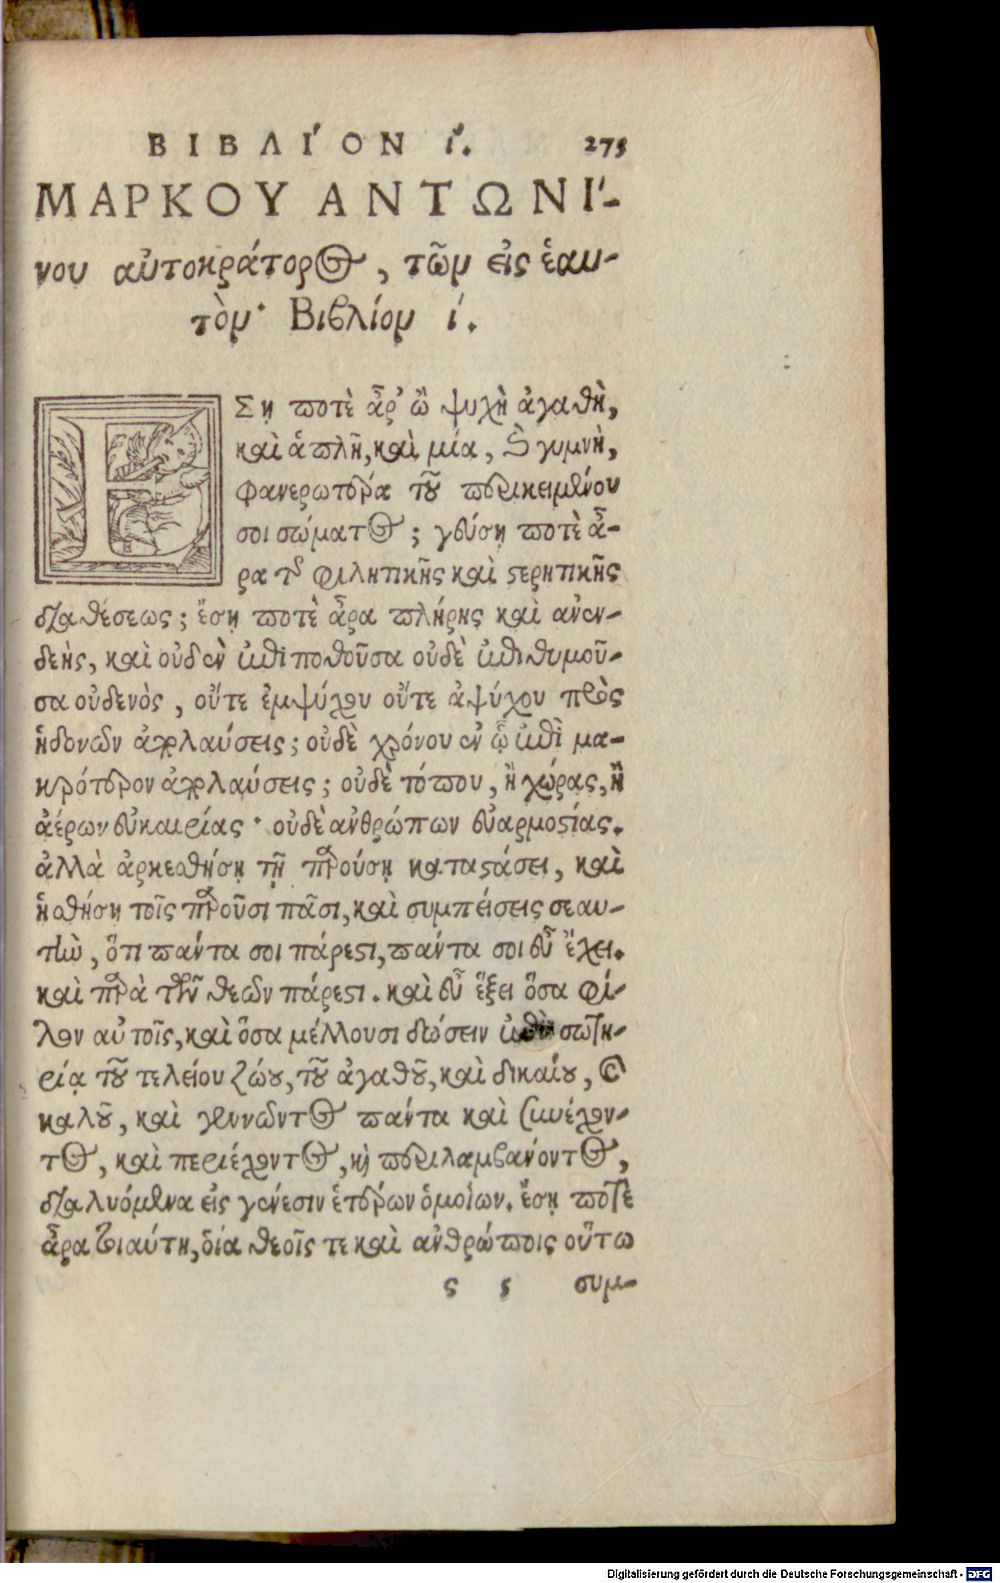 ΒΙΒΛΙ´ΟΝ ί. 275
ΜΑΡΚΟΥ ΑΝΤΩΝΙ´-
νου αὐτοκράτορος, τῶν εἰς ἑαυ-
τὸν· Βιβλίον ί.
ΕΣῃ ποτὲ ἆρ᾽ ὦ ψυχὴ ἀγαθὴ,
καὶ ἁπλῆ, καὶ μία, καὶ γυμνὴ,
φανερωτέρα τοῦ περικειμένου
σοι σώματος; γεύσῃ ποτὲ ἆ-
ρα τῆς φιλητικῆς καὶ στερητικῆς
διαθέσεως; ἔσῃ ποτὲ ἆρα πλήρης καὶ ἀνεν-
δεὴς, καὶ οὐδὲν ἐπιποθοῦσα οὐδὲ ἐπιθυμοῦ-
σα οὐδενὸς, οὔτε ἐμψύχου οὔτε ἀψύχου πρὸς
ἡδονῶν ἀπολαύσεις; οὐδὲ χρόνου ἐν ᾧ ἐπὶ μα-
κρότερον ἀπολαύσεις; οὐδὲ τόπου, ἢ χώρας, ἢ
ἀέρων εὐκαιρίας· οὐδὲ ἀνθρώπων εὐαρμοστίας.
ἀλλὰ ἀρκεσθήσῃ τῇ παρούσῃ καταστάσει, καὶ
ἡσθήσῃ τοῖς παροῦσι πᾶσι, καὶ συμπείσεις σεαυ-
τὴν, ὅτι πάντα σοι πάρεστι, πάντα σοι εὖ ἔχει.
καὶ παρὰ τῶν θεῶν πάρεστι. καὶ εὖ ἕξει ὅσα φί-
λον αὐτοῖς, καὶ ὅσα μέλλουσι δώσειν ἐπὶ σωτη-
ρίᾳ τοῦ τελείου ζώου, τοῦ ἀγαθοῦ, καὶ δικαίου, καὶ
καλοῦ, καὶ γεννῶντος πάντα καὶ συνέχον-
τος, καὶ περιέχοντος, καὶ περιλαμβάνοντος,
διαλυόμενα εἰς γένεσιν ἑτέρων ὁμοίων. ἔσῃ ποτὲ
ἆρα τοιαύτη, οἵα θεοῖς τε καὶ ἀνθρώποις οὕτω
ς 5 συμ-
Digitalisierung gefördert durch die Deutsche Forschungsgemeinschaft - DFG